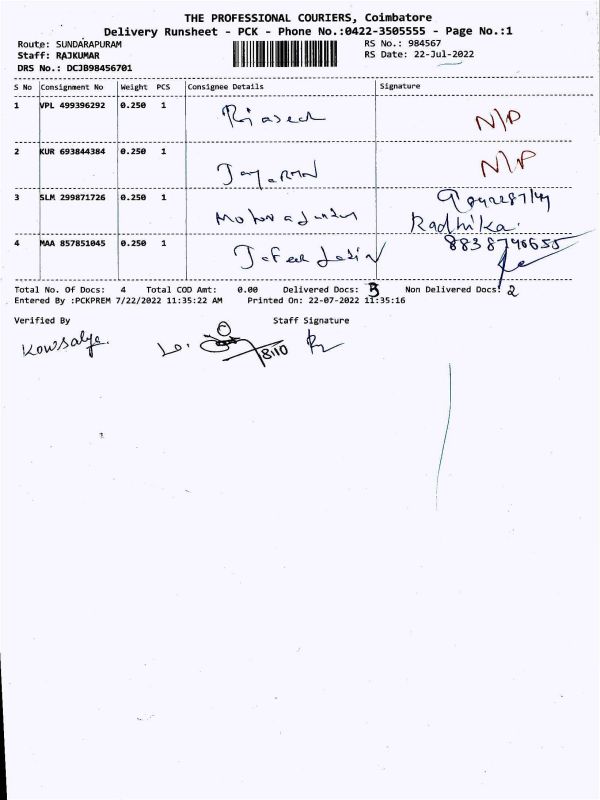 THE PROFESSIONAL COURIERS, Coimbatore
Delivery Runsheet - PCK - Phone No.:0422-3505555 - Page No.:1
Route: SUNDARAPURAM RS No.: 984567
Staff: RAJKUMAR RS Date: 22-Jul-2022
DRS No.: DCJB98456701
S No Consignment No Weight PCS Consignee Details Signature
1 VPL 499396292 0.250 1 N/P
2 KUR 693844384 0.250 1 N/P
3 SLM 299871726 0.250 1 Radhika.
4 MAA 857851045 0.250 1 8838746655
Total No. Of Docs: 4 Total COD Amt: 0.00 Delivered Docs: Non Delivered Docs: 2
Entered By :PCKPREM 7/22/2022 11:35:22 AM Printed On: 22-07-2022 11:35:16
Verified By Staff Signature
Kowsalya. 8:10